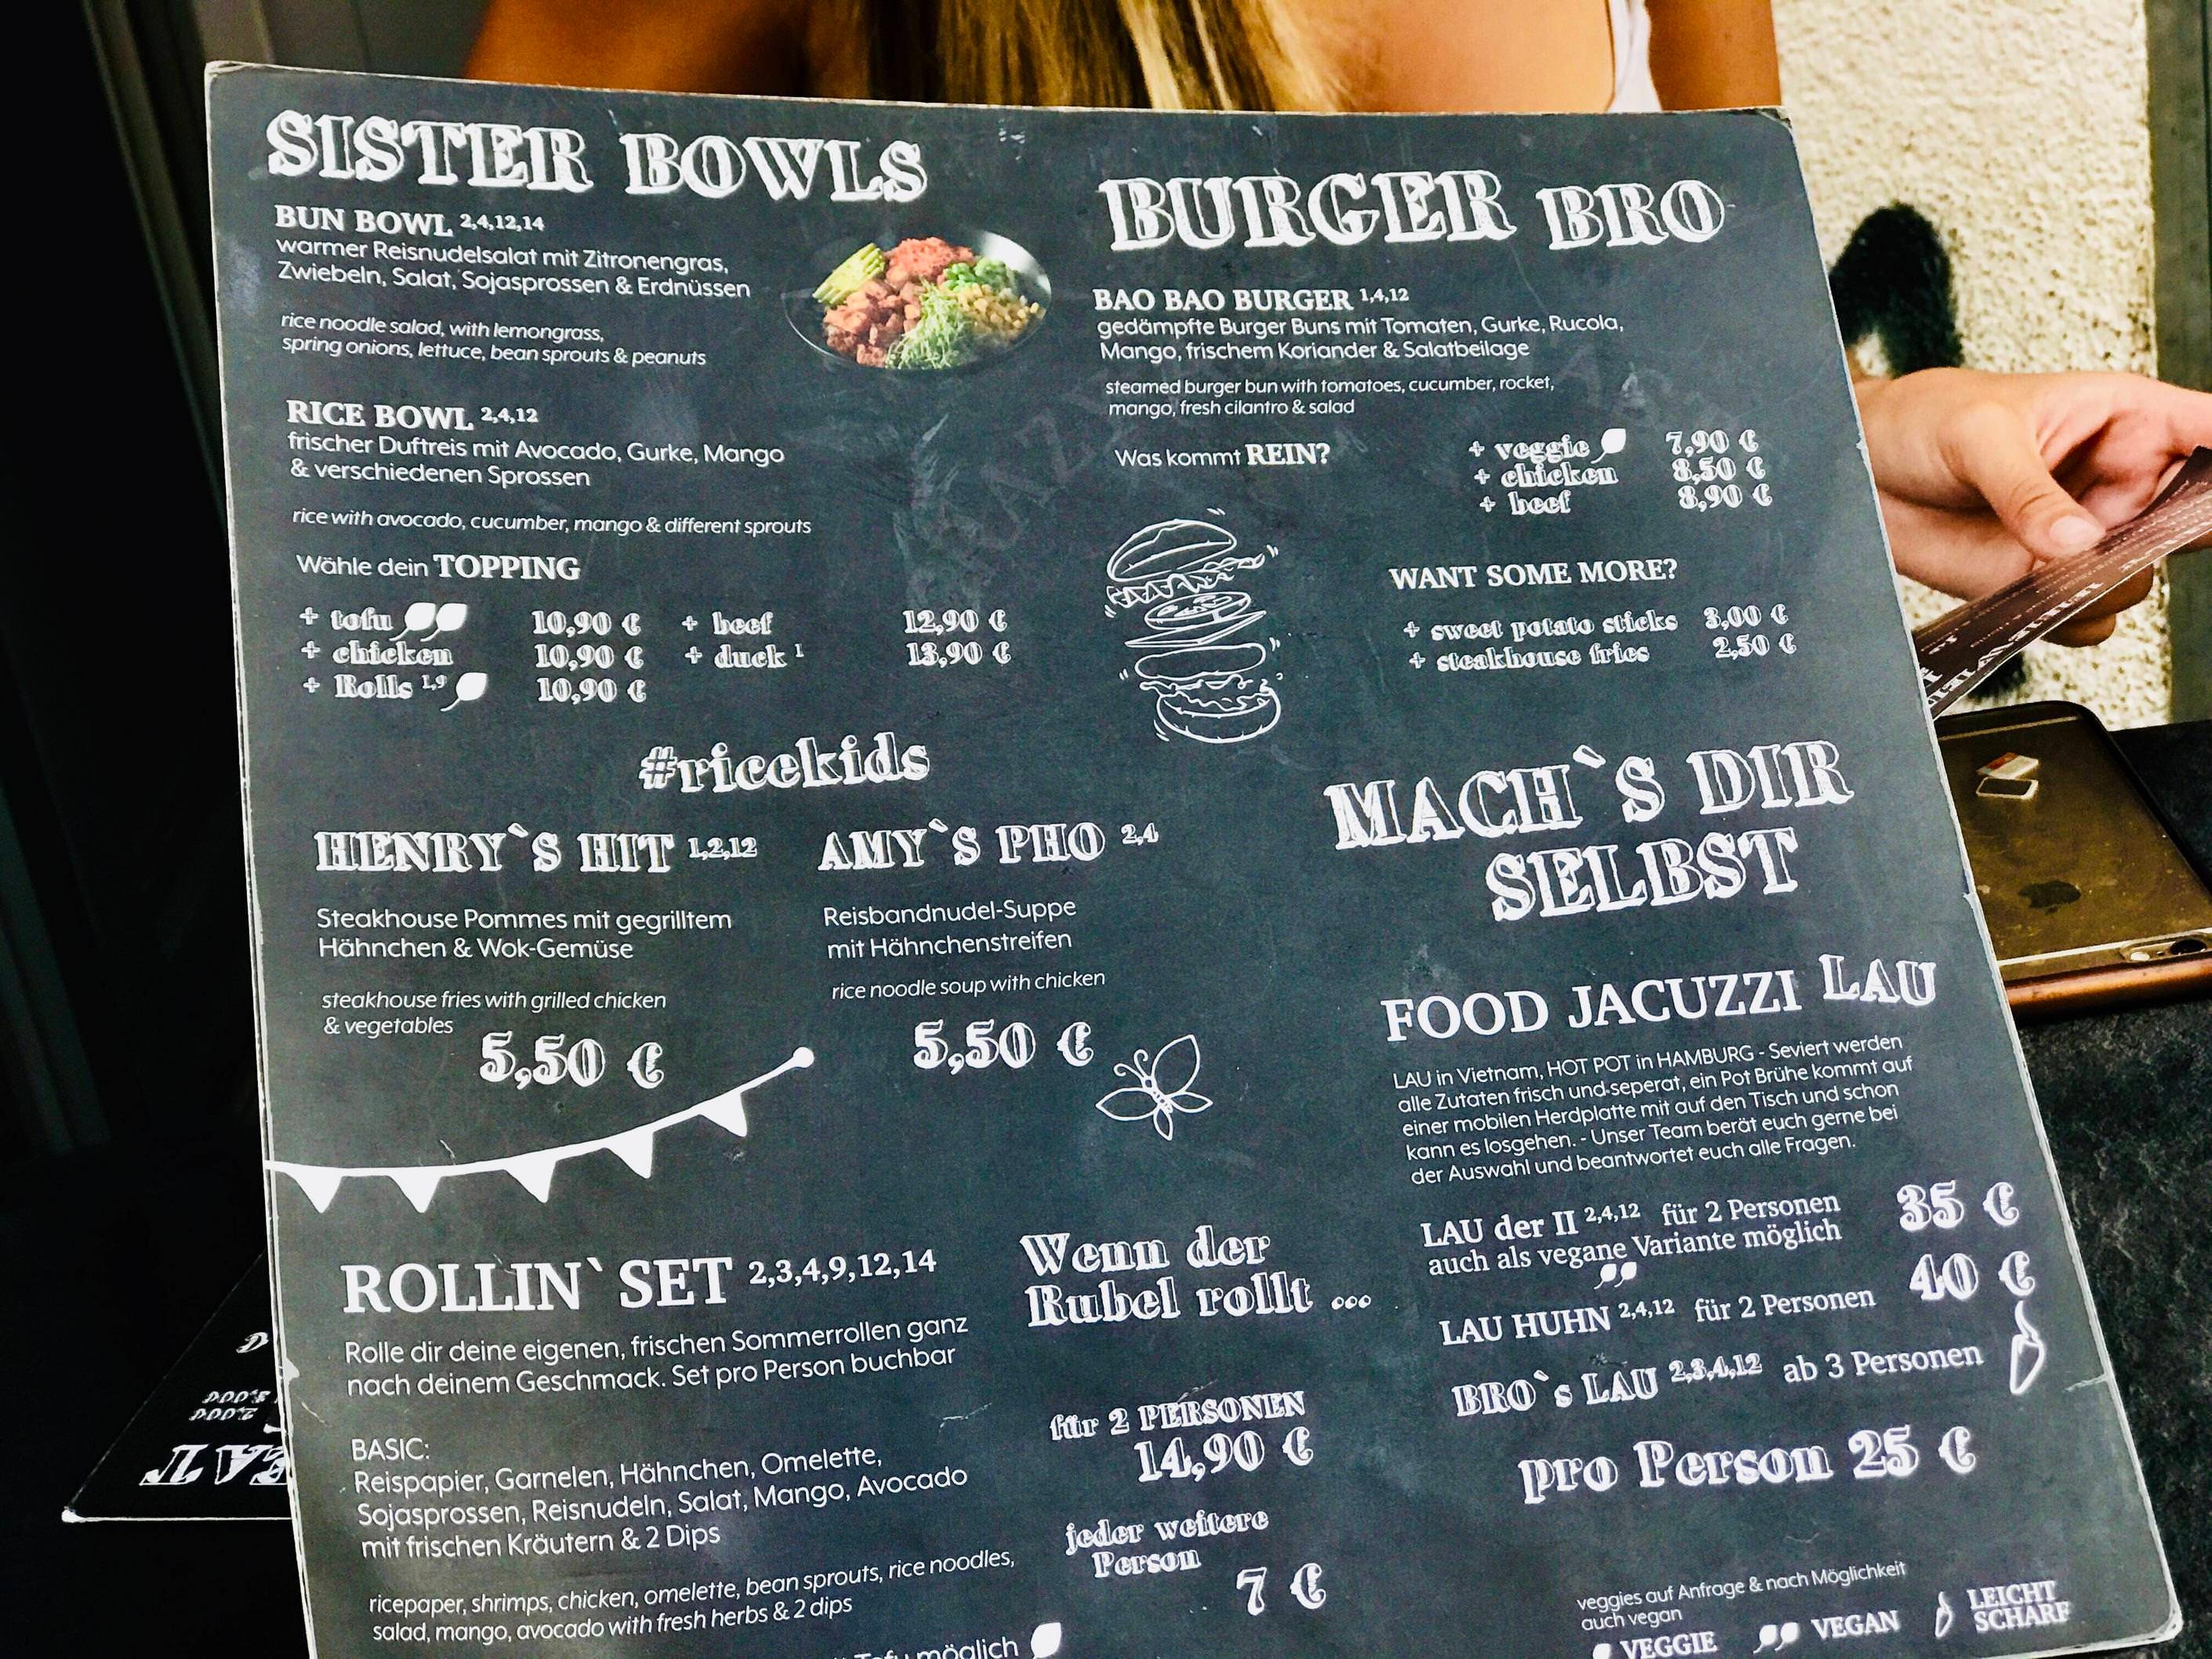 SISTER BOWLS
BUN BOWL 2,4,12,14
warmer Reisnudelsalat mit Zitronengras,
Zwiebeln, Salat, Sojasprossen & Erdnüssen
rice noodle salad, with lemongrass,
spring onions, lettuce, bean sprouts & peanuts
RICE BOWL 2,4,12
frischer Duftreis mit Avocado, Gurke, Mango
& verschiedenen Sprossen
rice with avocado, cucumber, mango & different sprouts
Wähle dein TOPPING
+ tofu 10,90 € + beef 12,90 €
+ chicken 10,90 € + duck 1 13,90 €
+ Rolls 1,9 10,90 €
BURGER BRO
BAO BAO BURGER 1,4,12
gedämpfte Burger Buns mit Tomaten, Gurke, Rucola,
Mango, frischem Koriander & Salatbeilage
steamed burger bun with tomatoes, cucumber, rocket,
mango, fresh cilantro & salad
Was kommt REIN?
+ veggie 7,90 €
+ chicken 8,50 €
+ beef 8,90 €
WANT SOME MORE?
+ sweet potato sticks 3,00 €
+ steakhouse fries 2,50 €
#ricekids
HENRY`S HIT 1,2,12
Steakhouse Pommes mit gegrilltem
Hähnchen & Wok-Gemüse
steakhouse fries with grilled chicken
& vegetables
5,50 €
AMY`S PHO 2,4
Reisbandnudel-Suppe
mit Hähnchenstreifen
rice noodle soup with chicken
5,50 €
MACH`S DIR
SELBST
FOOD JACUZZI LAU
LAU in Vietnam, HOT POT in HAMBURG - Seviert werden
alle Zutaten frisch und seperat, ein Pot Brühe kommt auf
einer mobilen Herdplatte mit auf den Tisch und schon
kann es losgehen. - Unser Team berät euch gerne bei
der Auswahl und beantwortet euch alle Fragen.
LAU der II 2,4,12 für 2 Personen 35 €
auch als vegane Variante möglich
LAU HUHN 2,4,12 für 2 Personen 40 €
BRO`s LAU 2,3,4,12 ab 3 Personen
pro Person 25 €
ROLLIN`SET 2,3,4,9,12,14
Rolle dir deine eigenen, frischen Sommerrollen ganz
nach deinem Geschmack. Set pro Person buchbar
BASIC:
Reispapier, Garnelen, Hähnchen, Omelette,
Sojasprossen, Reisnudeln, Salat, Mango, Avocado
mit frischen Kräutern & 2 Dips
ricepaper, shrimps, chicken, omelette, bean sprouts, rice noodles,
salad, mango, avocado with fresh herbs & 2 dips
Tofu möglich
Wenn der
Rubel rollt ...
für 2 PERSONEN
14,90 €
jeder weitere
Person
7 €
veggies auf Anfrage & nach Möglichkeit
auch vegan
VEGGIE VEGAN LEICHT
SCHARF